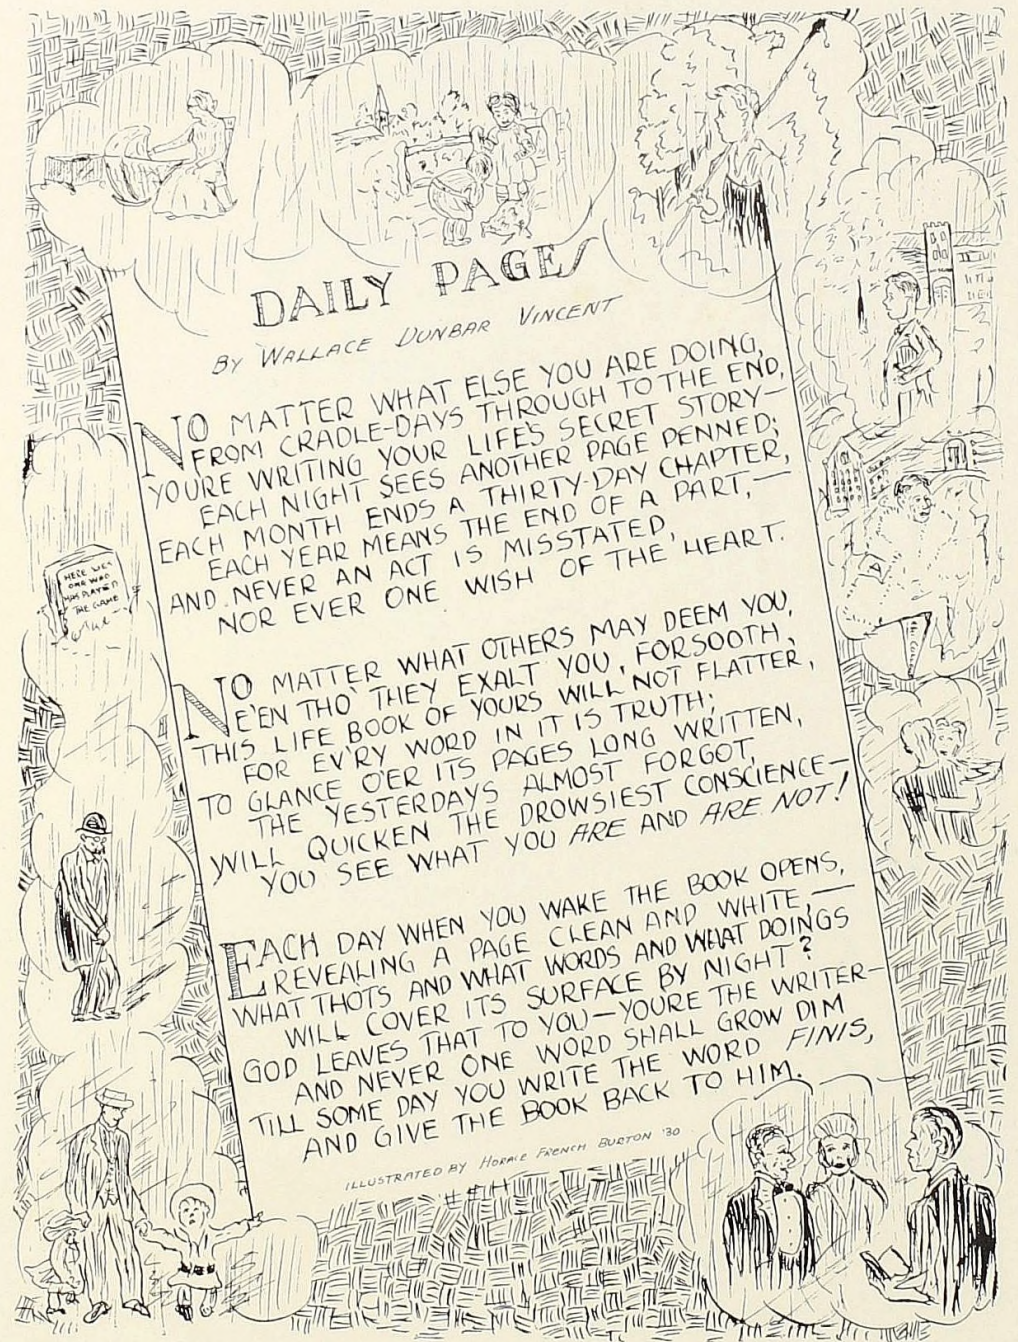 DAILY PAGES
BY WALLACE DUNBAR VINCENT
NO MATTER WHAT ELSE YOU ARE DOING,
FROM CRADLE-DAYS THROUGH TO THE END,
YOURE WRITING YOUR LIFE'S SECRET STORY—
EACH NIGHT SEES ANOTHER PAGE PENNED;
EACH MONTH ENDS A THIRTY-DAY CHAPTER,
EACH YEAR MEANS THE END OF A PART,—
AND NEVER AN ACT IS MISSTATED,
NOR EVER ONE WISH OF THE HEART.
NO MATTER WHAT OTHERS MAY DEEM YOU,
E'EN THO' THEY EXALT YOU, FORSOOTH,
THIS LIFE BOOK OF YOURS WILL NOT FLATTER,
FOR EV'RY WORD IN IT IS TRUTH;
TO GLANCE O'ER ITS PAGES LONG WRITTEN,
THE YESTERDAYS ALMOST FORGOT,
WILL QUICKEN THE DROWSIEST CONSCIENCE—
YOU SEE WHAT YOU ARE AND ARE NOT!
EACH DAY WHEN YOU WAKE THE BOOK OPENS,
REVEALING A PAGE CLEAN AND WHITE,—
WHAT THOTS AND WHAT WORDS AND WHAT DOINGS
WILL COVER ITS SURFACE BY NIGHT?
GOD LEAVES THAT TO YOU—YOURE THE WRITER—
AND NEVER ONE WORD SHALL GROW DIM
TILL SOME DAY YOU WRITE THE WORD FINIS,
AND GIVE THE BOOK BACK TO HIM.
ILLUSTRATED BY HORACE FRENCH BURTON '30
HERE LIES
ONE WHO
HAS PLAYED
THE GAME